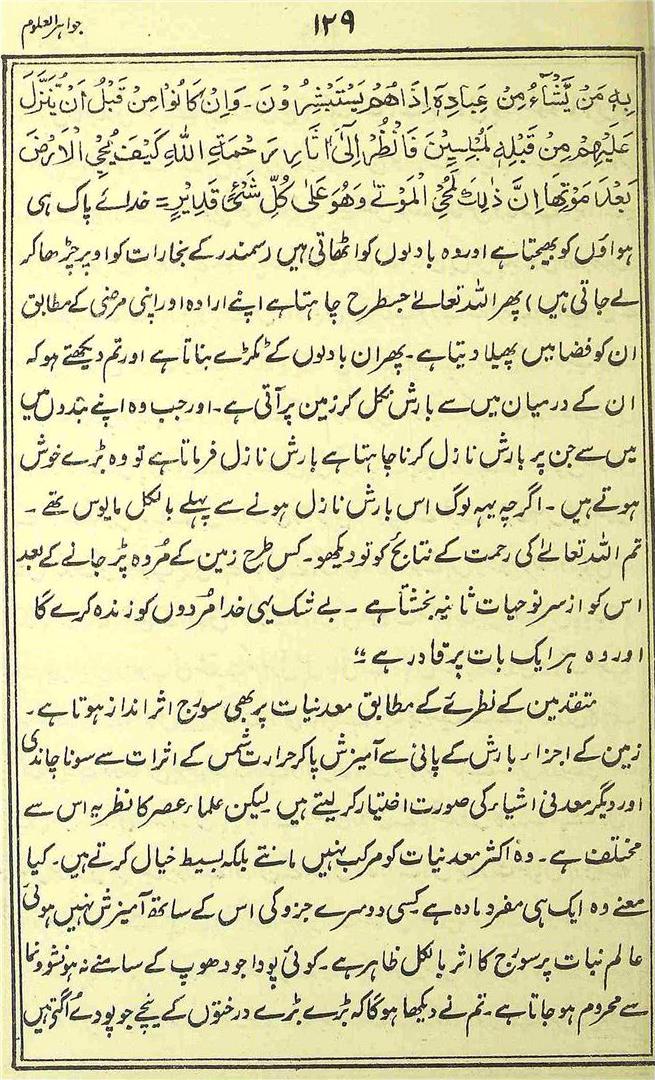 جواہر العلوم
۱۲۹
بِهٖ مَنْ يَّشَآءُ مِنْ عِبَادِهٖٓ اِذَا هُمْ يَسْتَبْشِرُوْنَ ۔ وَاِنْ كَانُوْا مِنْ قَبْلُ اَنْ يُّنَزَّلَ
عَلَيْهِمْ مِنْ قَبْلِهٖ لَمُبْلِسِيْنَ فَانْظُرْ اِلٰىٓ اٰثَارِ رَحْمَةِ اللّٰهِ كَيْفَ يُحْيِ الْاَرْضَ
بَعْدَ مَوْتِهَا اِنَّ ذٰلِكَ لَمُحْيِ الْمَوْتٰى وَهُوَ عَلٰى كُلِّ شَيْءٍ قَدِيْرٍ = خدائے پاک ہی
ہواؤں کو بھیجتا ہے اور وہ بادلوں کو اٹھاتی ہیں (سمندر کے بخارات کو اوپر چڑھا کر
لے جاتی ہیں) پھر اللہ تعالےٰ جسطرح چاہتا ہے اپنے ارادہ اور اپنی مرضی کے مطابق
ان کو فضا میں پھیلا دیتا ہے۔ پھر ان بادلوں کے ٹکڑے بناتا ہے اور تم دیکھتے ہو کہ
ان کے درمیان میں سے بارش نکل کر زمین پر آتی ہے۔ اور جب وہ اپنے بندوں میں
میں سے جن پر بارش نازل کرنا چاہتا ہے بارش نازل فرماتا ہے تو وہ بڑے خوش
ہوتے ہیں ۔ اگرچہ یہہ لوگ اس بارش نازل ہونے سے پہلے بالکل مایوس تھے ۔
تم اللہ تعالےٰ کی رحمت کے نتائج کو تو دیکھو۔ کس طرح زمین کے مُردہ پڑ جانے کے بعد
اس کو از سر نو حیات ثانیہ بخشتا ہے ۔ بے شک یہی خدا مُردوں کو زندہ کرے گا
اور وہ ہر ایک بات پر قادر ہے ؛؛
متقدمین کے نظرئے کے مطابق معدنیات پر بھی سورج اثر انداز ہوتا ہے ۔
زمین کے اجزاء بارش کے پانی سے آمیزش پا کر حرارت شمس کے اثرات سے سونا چاندی
اور دیگر معدنی اشیاء کی صورت اختیار کر لیتے ہیں لیکن علماء عصر کا نظریہ اس سے
مختلف ہے ۔ وہ اکثر معدنیات کو مرکب نہیں مانتے بلکہ بسیط خیال کرتے ہیں ۔ کیا
معنے وہ ایک ہی مفرد مادہ ہے کیسی دوسرے جزو کی اس کے ساتھ آمیزش نہیں ہوئی
عالم نبات پر سورج کا اثر بالکل ظاہر ہے ۔ کوئی پودا جو دھوپ کے سامنے نہ ہو نشو و نما
سے محروم ہو جاتا ہے ۔ تم نے دیکھا ہوگا کہ بڑے بڑے درختوں کے نیچے جو پودے اُگتی ہیں